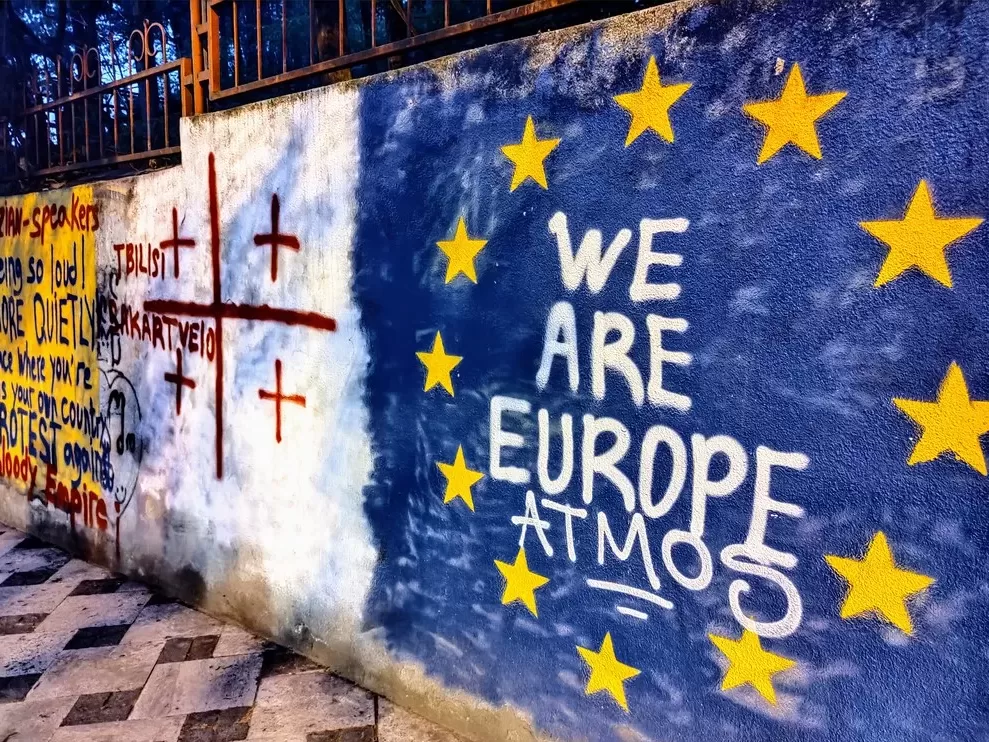 ZIAN-speakers
eing so loud!
ORE QUIETLY
ce where you're
s your own country
ROTEST against
loody Empire
TBILISI
SAKARTVELO
WE
ARE
EUROPE
ATMOS